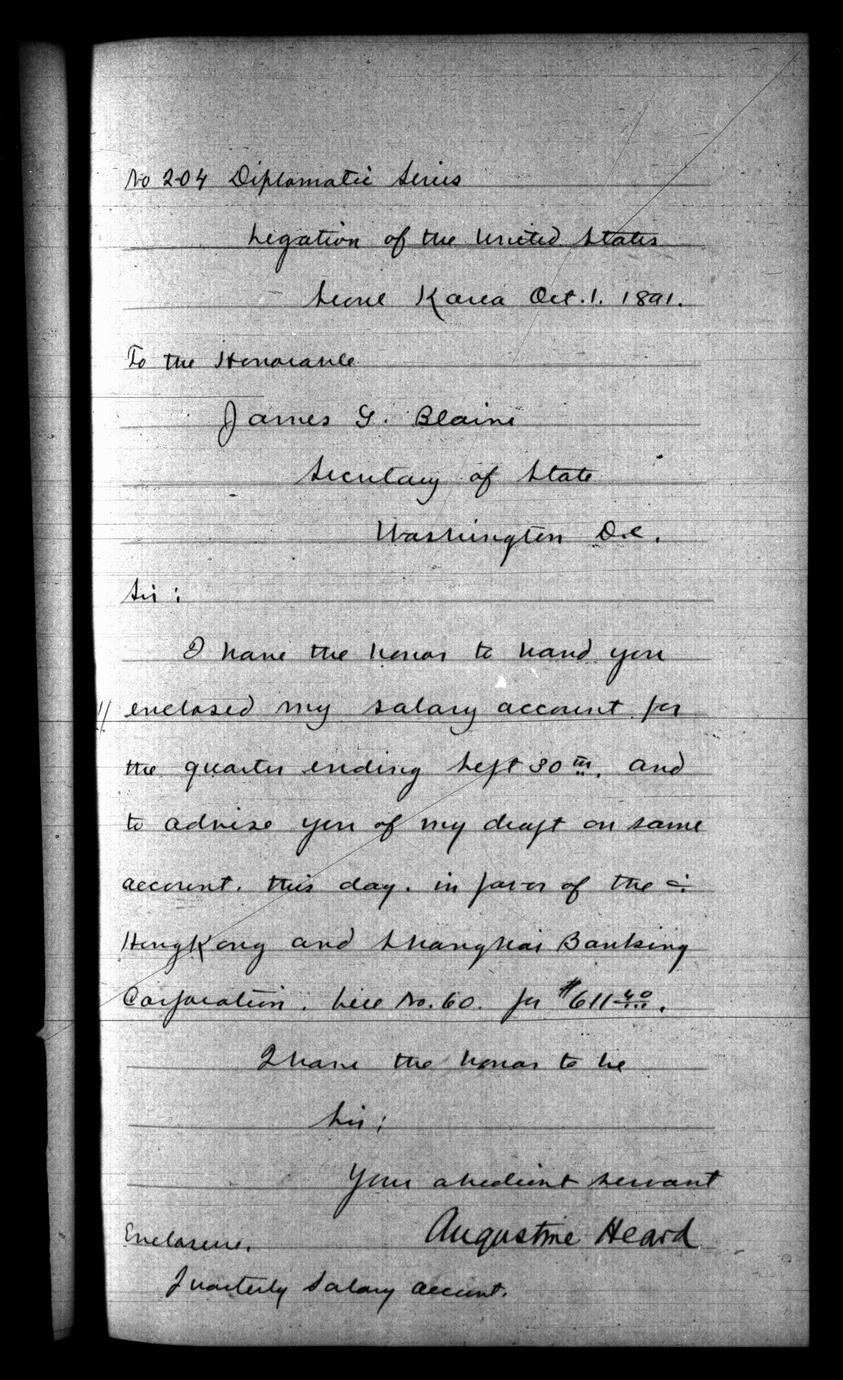 No 204 Diplomatic Series
Legation of the United States
Seoul Korea Oct. 1. 1891.
To the Honorable
James G. Blaine
Secretary of State
Washington D.C.
Sir:
I have the honor to hand you
enclosed my salary account for
the quarter ending Sept 30th, and
to advise you of my draft on same
account, this day, in favor of the
HongKong and Shanghai Banking
Corporation, No. 60. for $611 40
I have the honor to be
Sir;
Your obedient servant
Augustine Heard
Enclosure.
Quarterly Salary account.